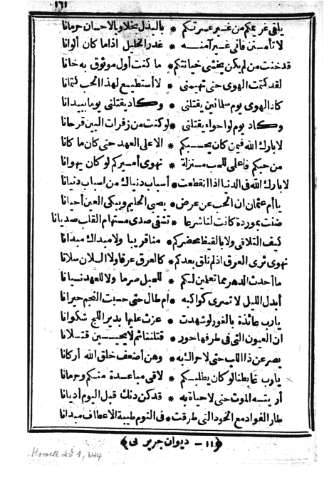 ١٦١
يلقى غريمكم من غير عسرتكم * بالبذل بخلا وبالاحسان حرمانا
لا تأمنن فانى غير آمنه * غدر الخليل اذا ما كان ألوانا
قد خنت من لم يكن يخشى خيانتكم * ما كنت أول موثوق به خانا
لقد كتمت الهوى حتى تهيمنى * لا أستطيع لهذا الحب كتمانا
كاد الهوى يوم سلمانين يقتلنى * وكاد يقتلنى يوما ببيدانا
وكاد يوم لوا حواء يقتلنى * لو كنت من زفرات البين قرحانا
لا بارك الله فيمن كان يحسبكم * الا على العهد حتى كان ما كانا
من حبكم فاعلمى للحب منزلة * نهوى أميركم لو كان يهوانا
لا بارك الله فى الدنيا اذا انقطعت * أسباب دنياك من أسباب دنيانا
يا أم عثمان ان الحب عن عرض * يصبى الحليم ويبكى العين أحيانا
ضنت بموردة كانت لنا شرعا * تشفى صدى مستهام القلب صديانا
كيف التلاقى ولا بالقيظ محضركم * منا قريبا ولا مبداك مبدانا
نهوى ثرى العرق اذ لم نلق بعدكم * كالعرق عرقا ولا السلان سلانا
ما أحدث الدهر مما تعلمين لكم * للحبل صرما ولا للعهد نسيانا
أبدل الليل لا تسرى كواكبه * ام طال حتى حسبت النجم حيرانا
يا رب عائذة بالغور لو شهدت * عزت عليها بدير اللج شكوانا
ان العيون التى فى طرفها حور * قتلننا ثم لم يحيين قتلانا
يصرعن ذا اللب حتى لا حراك به * وهن أضعف خلق الله أركانا
يا رب غابطنا لو كان يطلبكم * لاقى مباعدة منكم وحرمانا
أرينه الموت حتى لا حياة به * قد كن دنك قبل اليوم أديانا
طار الفؤاد مع الخود التى طرقت * فى النوم طيبة الاعطاف مبدانا
(١١ - ديوان جرير نى)